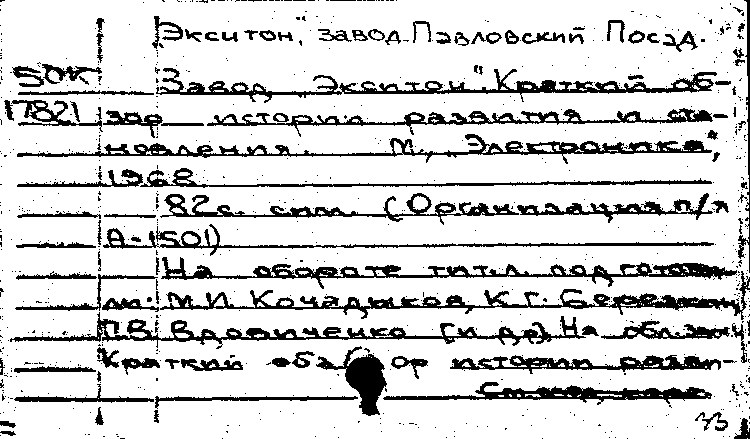 „Экситон", завод. Павловский Посад.
50К Завод „Экситон". Краткий об-
17821 зор истории развития и ста-
новления. М., „Электроника",
1968.
82с. илл. (Организация п/я
А-1501)
На обороте тит.л. подготови-
ли: М.И. Кочадыков, К.Г.
П.В. Вдовиченко [и др.]. На обл. загл:
Краткий обзор истории разви-
См. след. карт.